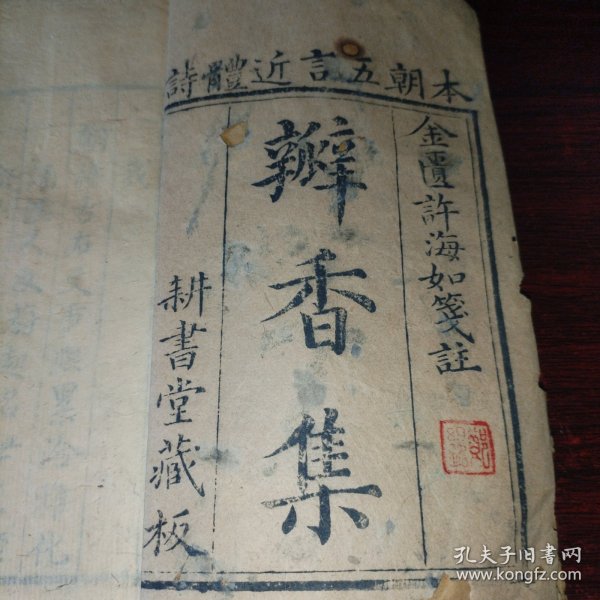 本朝五言近體詩
金匱許海如箋註
瓣香集
耕書堂藏板
孔夫子旧书网
www.kongfz.com